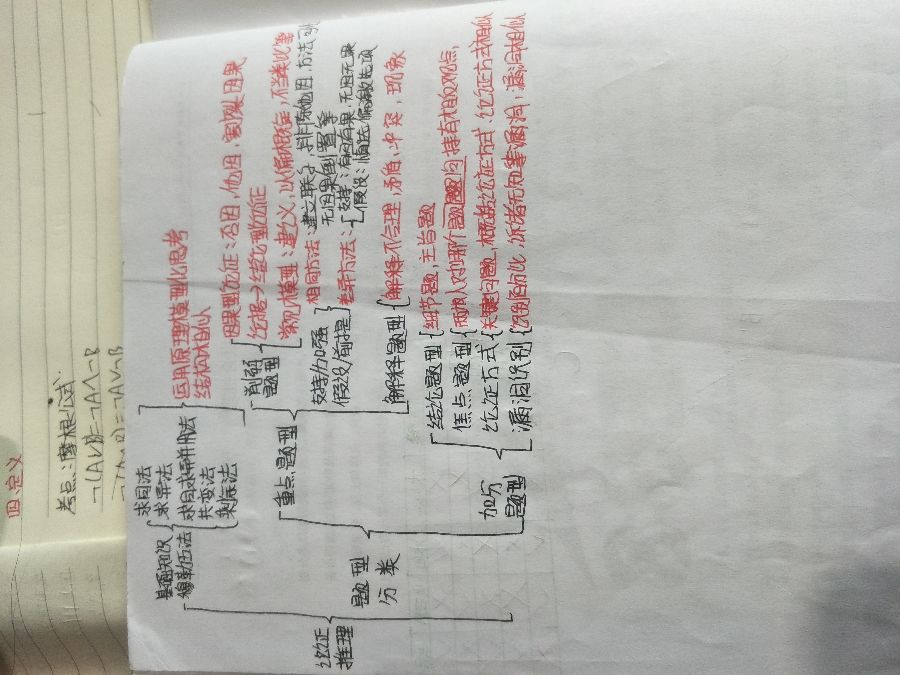 四.定义
考点:摩根公式.
¬(A∨B)=¬A∧¬B
论证
推理
基础知识
穆勒五法
求同法
求异法
求同求异并用法
共变法
剩余法
运用原理模型化思考
结构大相似
题型
分类
重点题型
削弱
题型
因果型论证:否因,他因,割裂因果
论据→结论型论证
常见大模型:建立联系,以偏概全,不当类比等
支持/加强
假设/前提
相同方法:建立联系,排除他因,方法可
无因果倒置等
差异方法:
支持:有因有果,无因无果
假设:慎选偏激选项
解释题型
解释不合理,矛盾,冲突,现象
加分
题型
结论题型
细节题,主旨题
焦点题型
两相人对哪个问题均持有相反观点,
论证方式
关键问题,概括论证方式,论证方式相似
漏洞识别
识别防比,诉诸无知等漏洞,漏洞相似